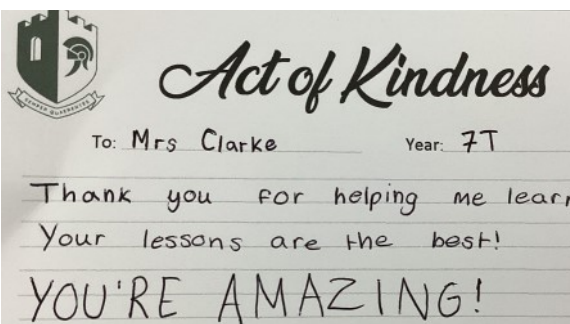 Act of Kindness
To: Mrs Clarke Year: 7T
Thank you for helping me lear
Your lessons are the best!
YOU'RE AMAZING!